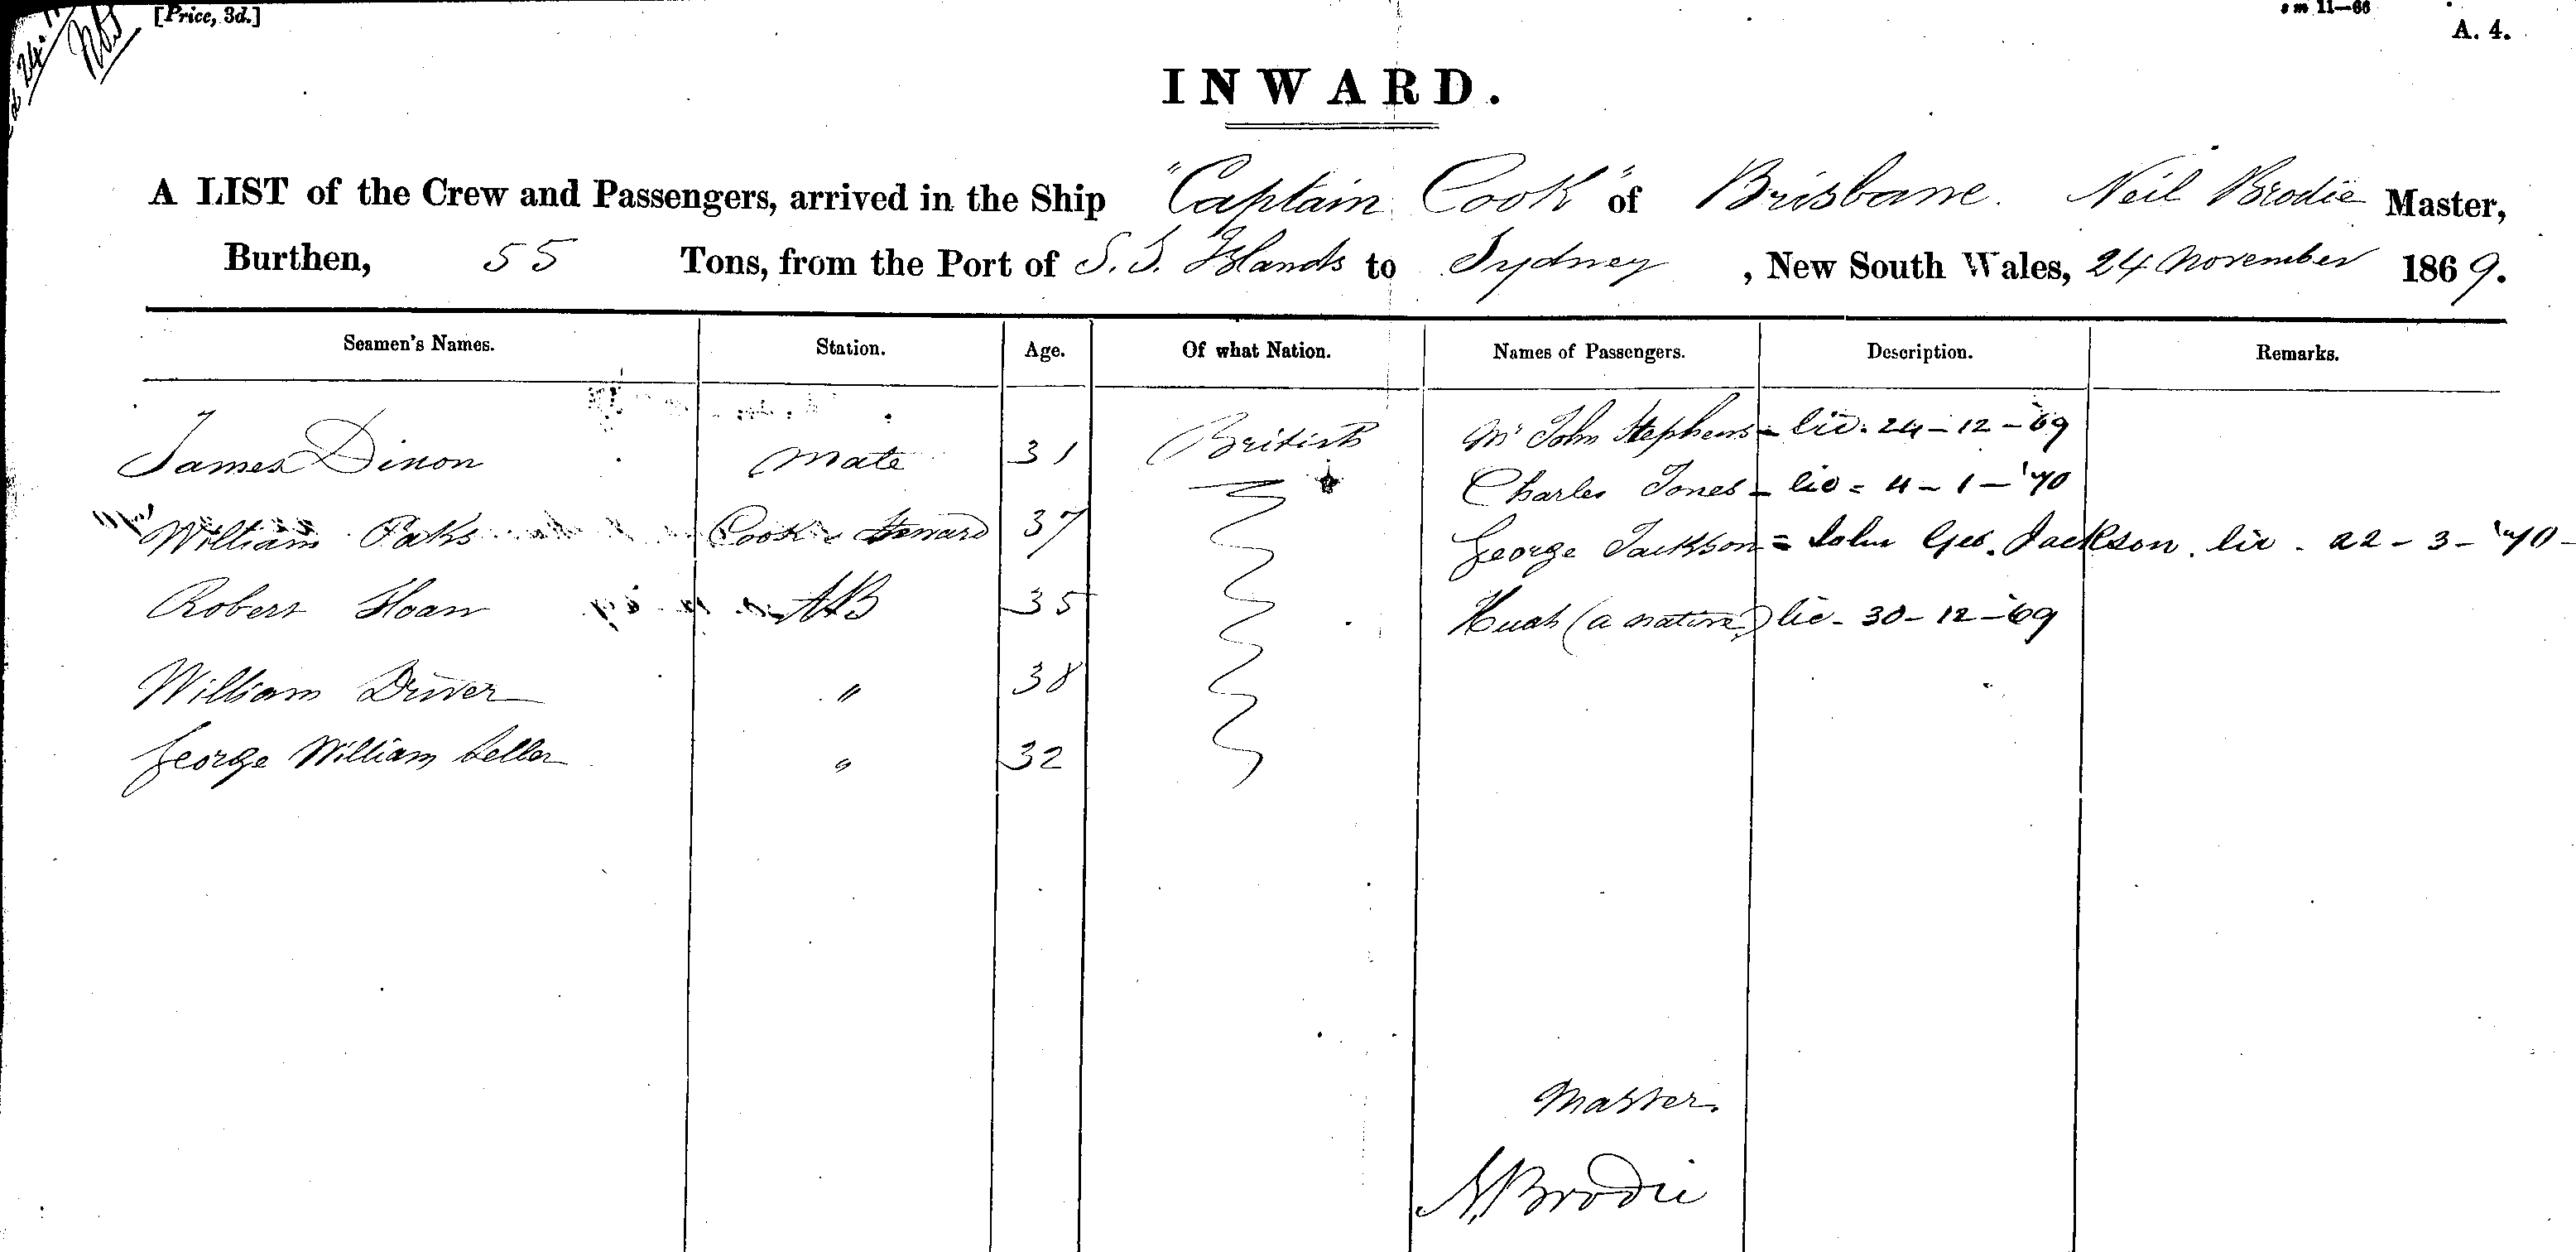 [Price, 3d.]
A. 4.
INWARD.
A LIST of the Crew and Passengers, arrived in the Ship "Captain Cook" of Brisbane. Neil Brodie Master,
Burthen, 55 Tons, from the Port of S. S. Islands to Sydney , New South Wales, 24 November 1869.
Seamen's Names. Station. Age. Of what Nation. Names of Passengers. Description. Remarks.
James Dixon Mate 31 British Mr John Stephens - lic. 24-12-69
Charles Jones - lic = 4-1-'70
William Cook & Steward 37 George Jackson = John Geo. Jackson. lic - 22-3-'70-
Robert Sloan AB 35 (a native) lic - 30-12-69
William Driver " 38
George William " 32
Master.
N Brodie